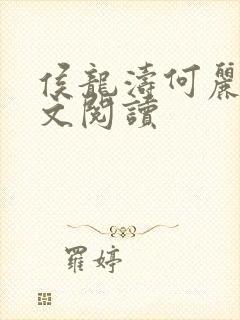 侯龍濤何麗
文閱讀
羅婷